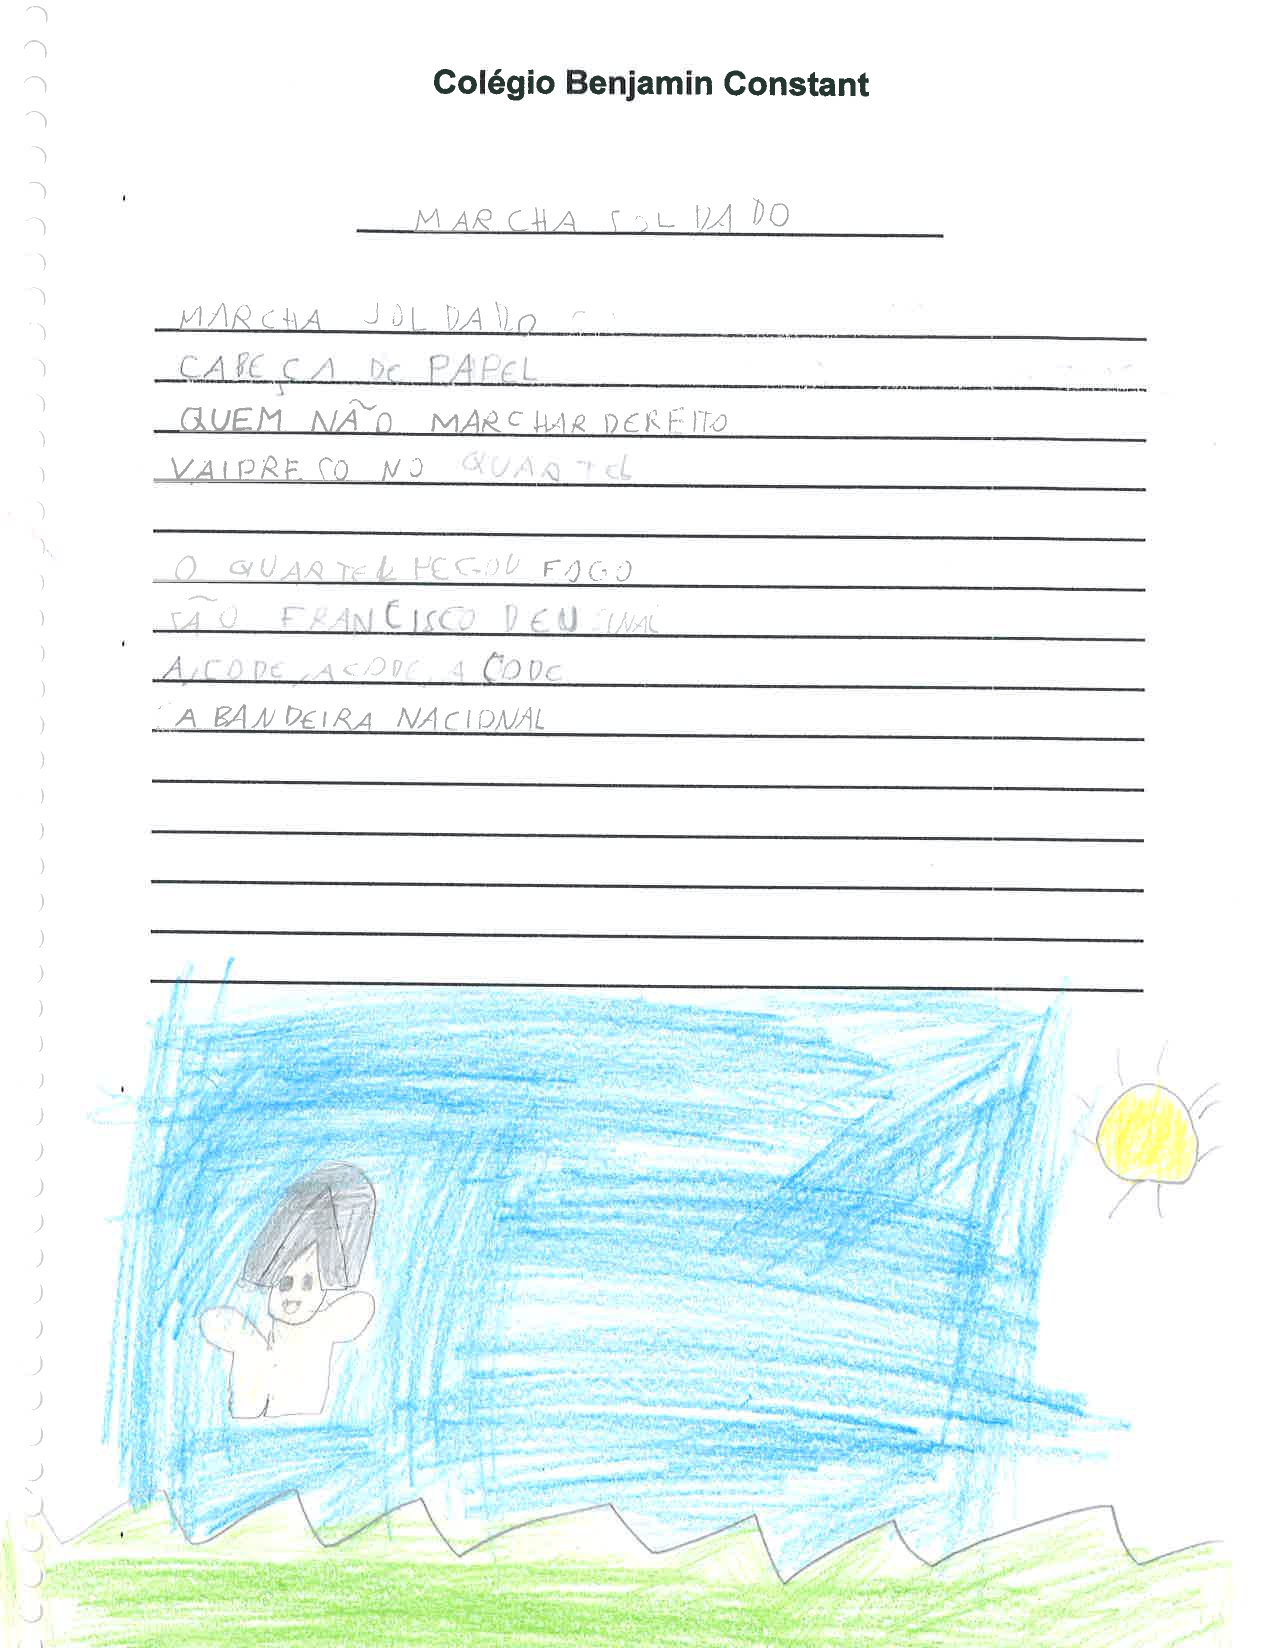 Colégio Benjamin Constant
MARCHA SOLDADO
MARCHA SOLDADO
CABEÇA De PAPEL
QUEM NÃO MARCHAR DEREITO
VAIPRESO NO QUARTEL
O QUARTEL PEGOU FOGO
SÃO FRANCISCO DEU SINAL
A,CODE, ACODE, A CODE
A BANDEIRA NACIONAL